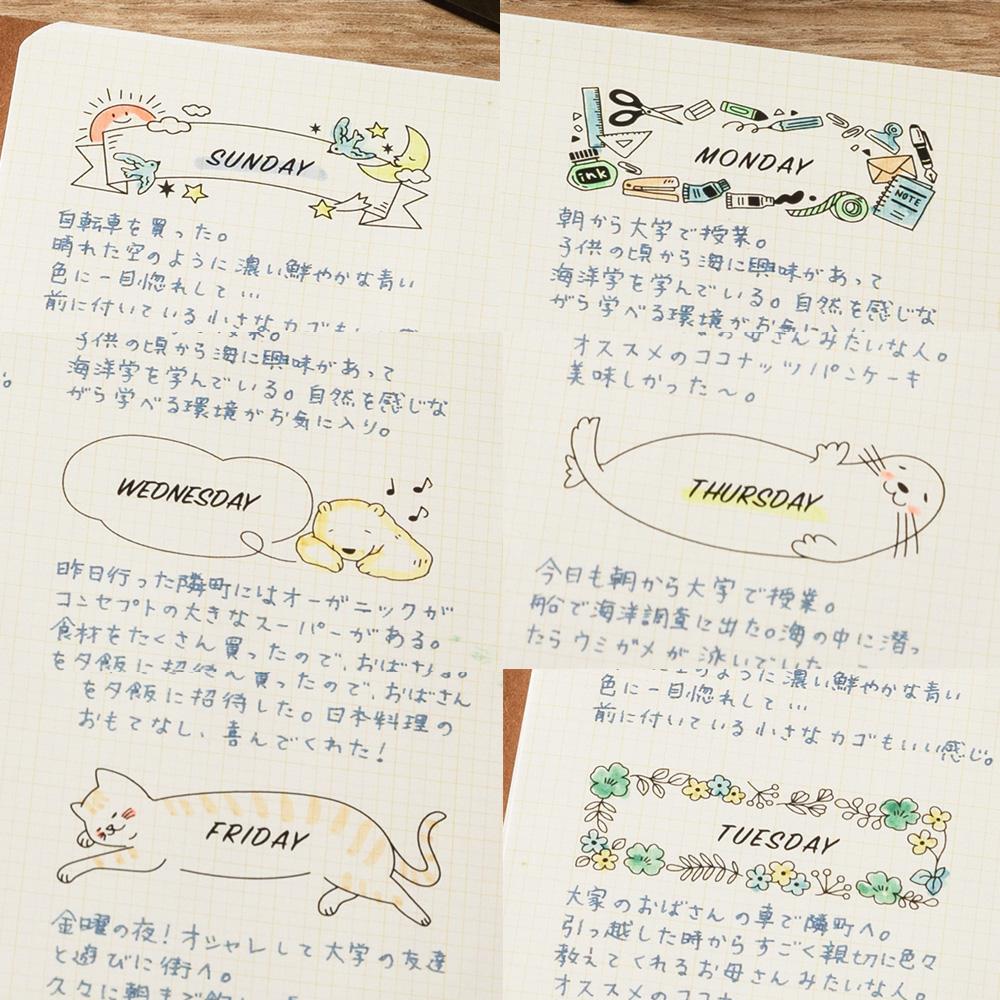 SUNDAY
自転車を買った。
晴れた空のように濃い鮮やかな青い
色に一目惚れして…
前に付いている小さなカゴもいい感
MONDAY
ink
NOTE
朝から大学で授業。
子供の頃から海に興味があって
海洋学を学んでいる。自然を感じな
がら学べる環境がお気に入り
子供の頃から海に興味があって
海洋学を学んでいる。自然を感じな
がら学べる環境がお気に入り。
WEDNESDAY
昨日行った隣町にはオーガニックが
コンセプトの大きなスーパーがある。
食材をたくさん買ったので、おばさん
お母さんみたいな人。
オススメのココナッツパンケーキ
美味しかった〜。
THURSDAY
今日も朝から大学で授業。
船で海洋調査に出た。海の中に潜っ
たらウミガメが泳いでいた
買ったので、おばさん
を夕飯に招待した。日本料理の
おもてなし、喜んでくれた!
FRIDAY
金曜の夜!オシャレして大学の友達
と遊びに街へ。
久々に朝まで飲
ように濃い鮮やかな青い
色に一目惚れして…
前に付いている小さなカゴもいい感じ。
TUESDAY
大家のおばさんの車で隣町へ。
引っ越した時からすごく親切に色々
教えてくれるお母さんみたいな人。
オススメのココナ